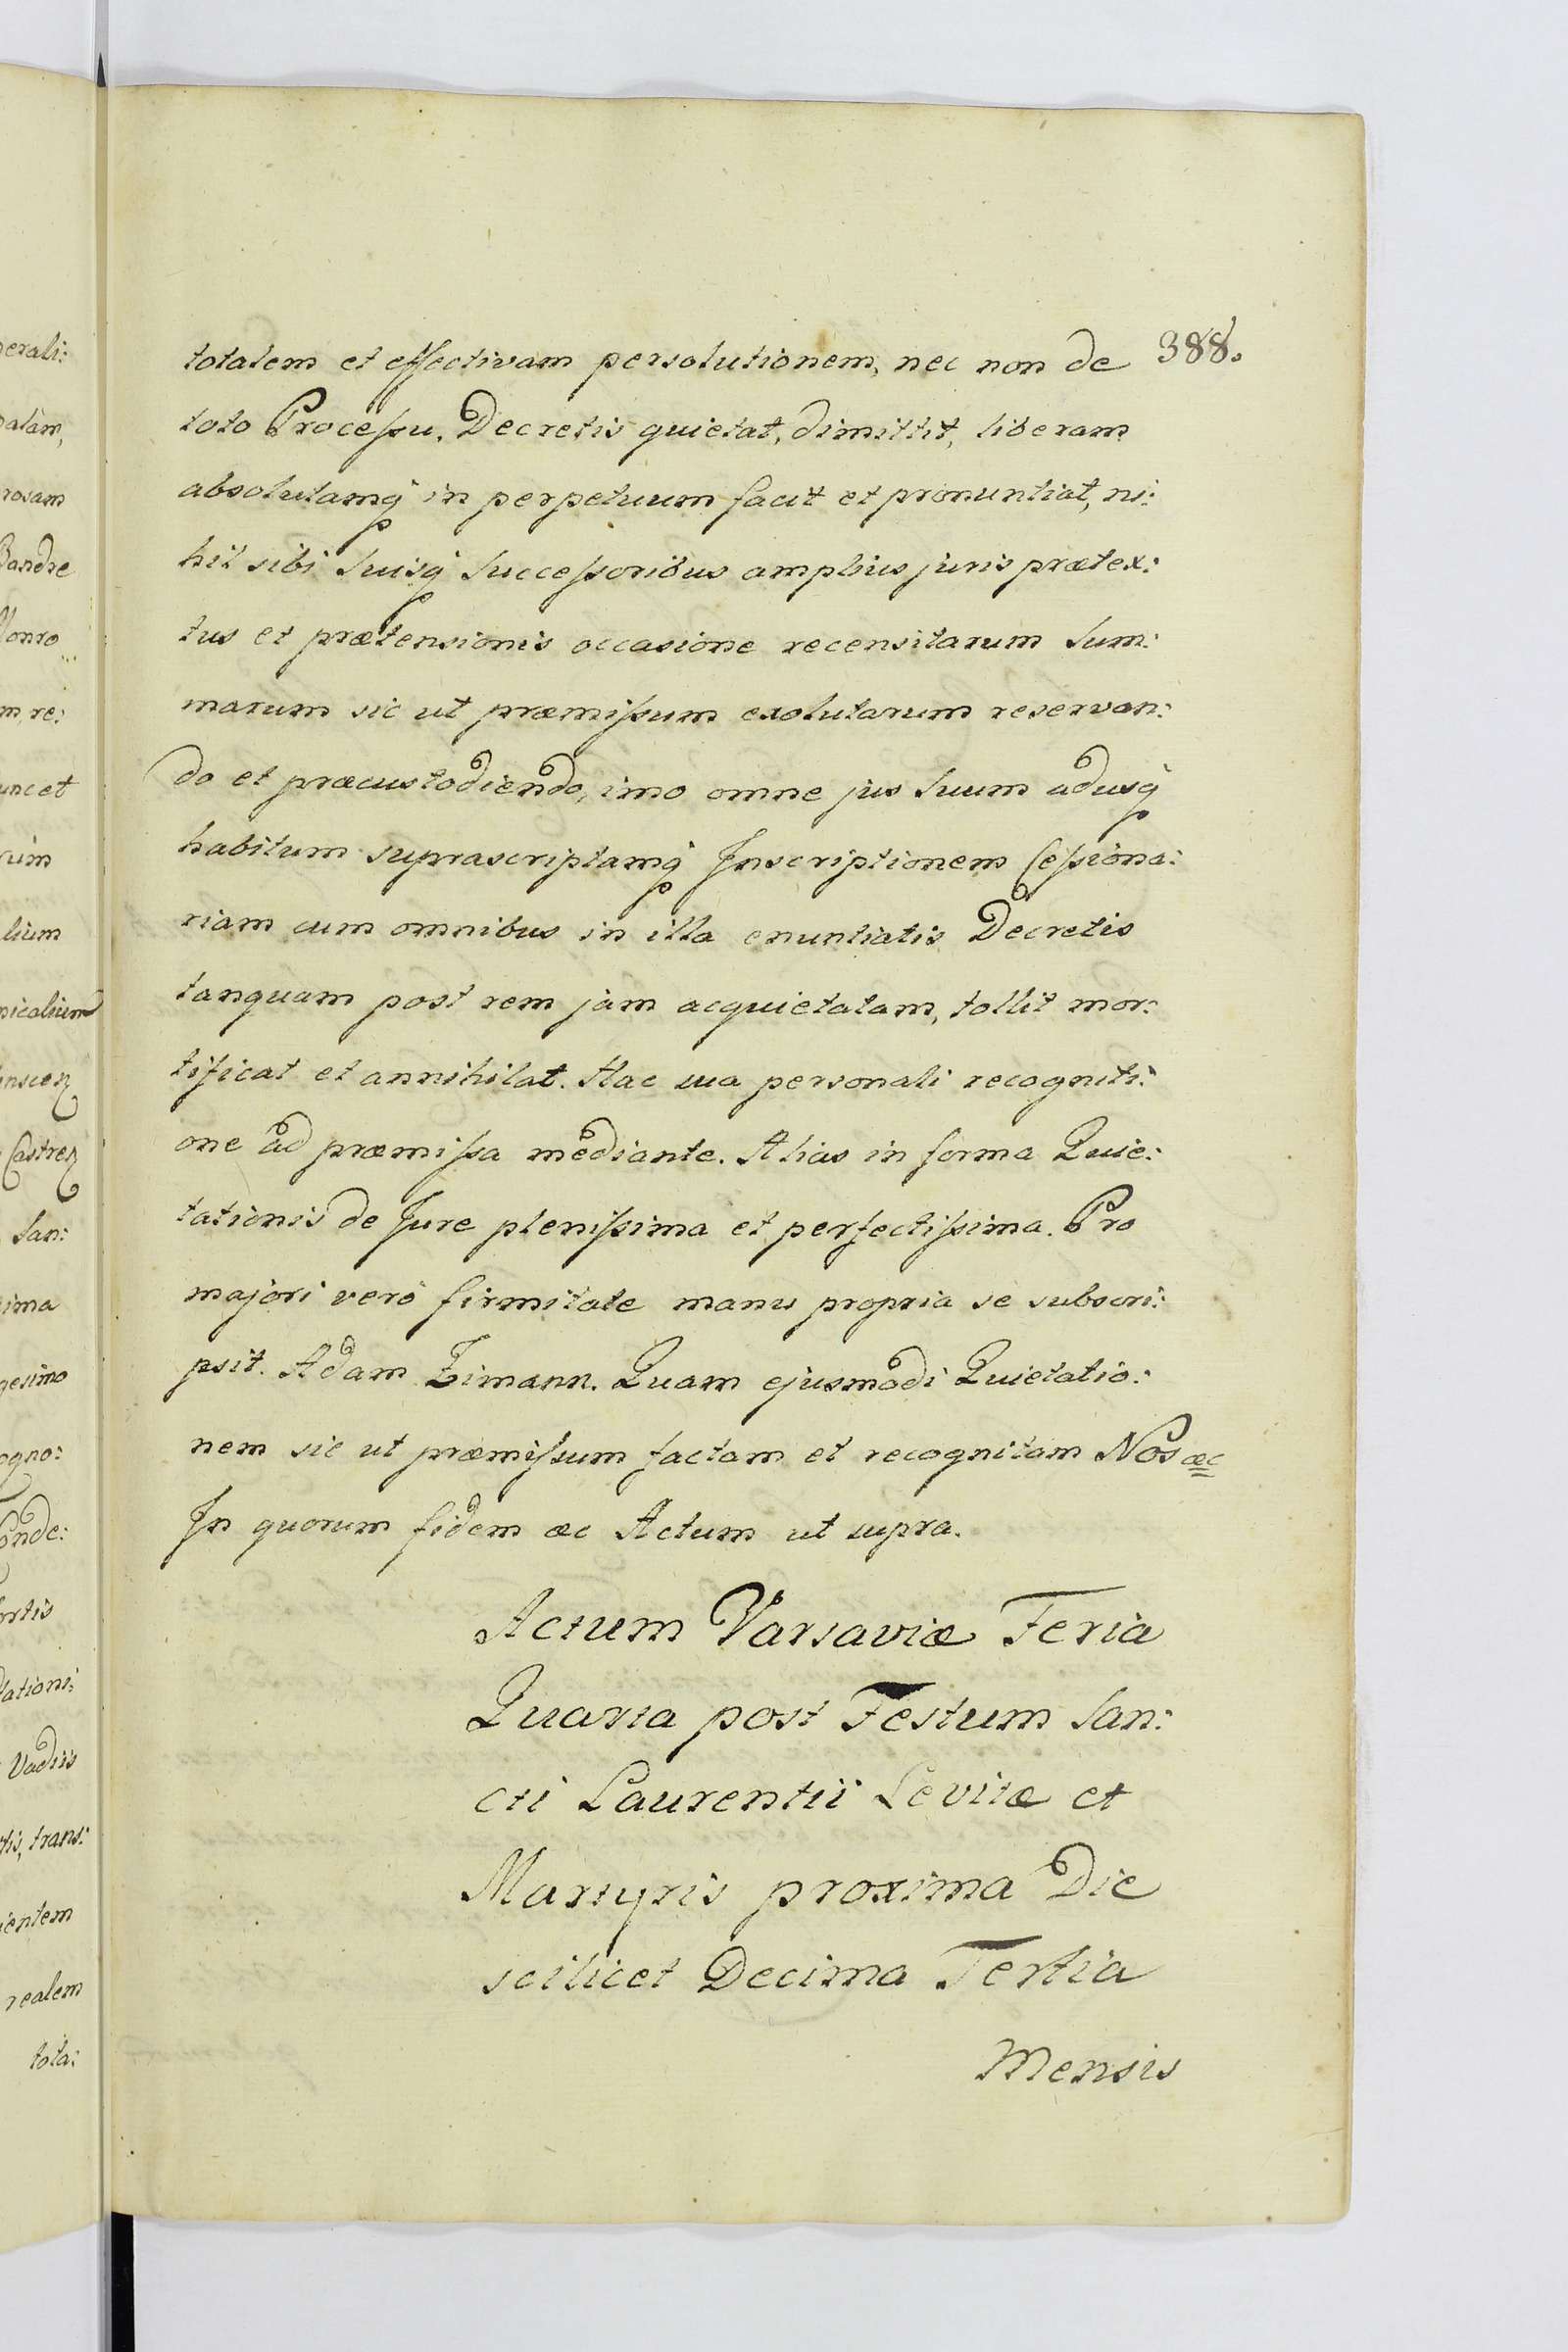 388.
totalem et effectivam persolutionem, nec non de
toto Processu, Decretis quietat, dimittit, liberam
absolutamq́ in perpetuum facit et pronuntiat, ni:
hil sibi suisq́ successoribus amplius juris prætex:
tus et prætensionis occasione recensitarum Sum:
marum sic ut præmissum exolutarum reservan:
do et præcustodiendo, imo omne jus suum adusq́
habitum suprascriptamq́ Inscriptionem Cessiona:
riam cum omnibus in illa enuntiatis Decretis
tanquam post rem jam acquietatam, tollit mor:
tificat et annihilat. Hac sua personali recogniti:
one ad præmissa mediante. Alias in forma Quie:
tationis de Jure plenissima et perfectissima. Pro
majori verò firmitate manu propria se subscri:
psit. Adam Zimann. Quam ejusmodi Quietatio:
nem sic ut præmissum factam et recognitam Nos æc
In quorum fidem æc Actum ut supra.
Actum Varsaviæ Feria
Quarta post Festum San:
cti Laurentii Levitæ et
Martyris proxima Die
scilicet Decima Tertia
Mensis
erali:
alàm,
rosam
Bandre
m re:
unc et
lium
nicalium
Castren
San:
ima
gesimo
ogno:
Conde:
ortis
Vadiis
tis, trans:
ientem
realem
tota: